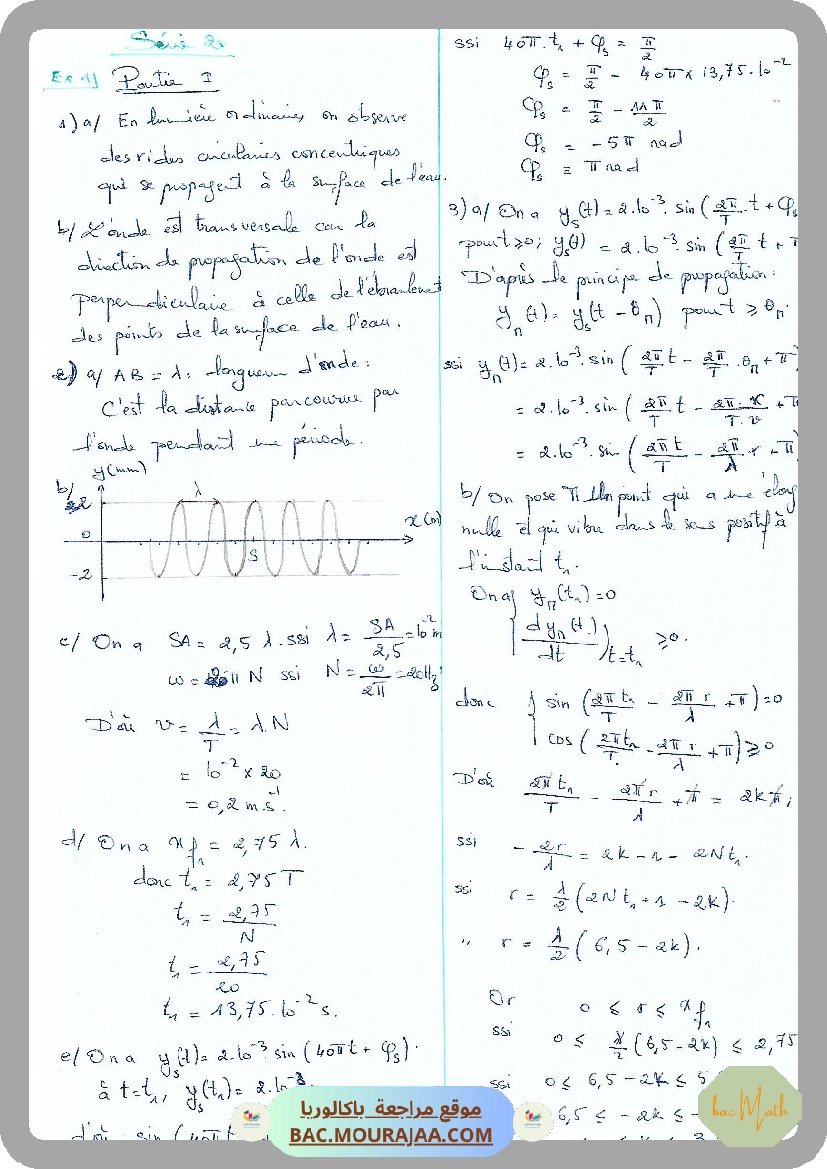 Série 20
Ex 1) Partie I
1) a/ En lumière ordinaire, on observe
des rides circulaires concentriques
qui se propagent à la surface de l'eau.
b/ L'onde est transversale car la
direction de propagation de l'onde est
perpendiculaire à celle de l'ébranlement
des points de la surface de l'eau.
2) a/ AB = λ : longueur d'onde :
C'est la distance parcourue par
l'onde pendant une période.
b/ y(mm)
2
λ
0
x(m)
S
-2
c/ On a SA = 2,5 λ. ssi λ = SA/2,5 = 10^-2 m
ω = 2π N ssi N = ω/2π = 20Hz
D'où v = λ/T = λ.N
= 10^-2 x 20
= 0,2 m.s^-1.
d/ On a x_f1 = 2,75 λ.
donc t1 = 2,75 T
t1 = 2,75/N
t1 = 2,75/20
t1 = 13,75.10^-2 s.
e/ On a y_s(t) = 2.10^-3 sin (40πt + φ_s).
à t=t1, y_s(t1) = 2.10^-3
d'où sin (40πt
ssi 40π.t1 + φ_s = π/2
φ_s = π/2 - 40π x 13,75.10^-2
φ_s = π/2 - 11π/2
φ_s = -5π rad
φ_s ≡ π rad
3) a/ On a y_s(t) = 2.10^-3. sin ( 2π/T.t + φ_s
pour t≥0; y_s(t) = 2.10^-3. sin ( 2π/T t + π
D'après le principe de propagation :
y_M(t) = y_s(t - θ_M) pour t ≥ θ_M.
ssi y_M(t) = 2.10^-3. sin ( 2π/T t - 2π/T . θ_M + π
= 2.10^-3. sin ( 2π/T t - 2π.r/T.v + π
= 2.10^-3. sin ( 2πt/T - 2π/λ r + π)
b/ On pose M un point qui a une élong
nulle et qui vibre dans le sens positif à
l'instant t1.
On a { y_M(t1) = 0
( dy_M(t)/dt )t=t1 ≥ 0.
donc { sin ( 2πt1/T - 2πr/λ + π) = 0
cos ( 2πt1/T - 2πr/λ + π) ≥ 0
D'où 2πt1/T - 2πr/λ + π = 2kπ;
ssi - 2r/λ = 2k - 1 - 2Nt1.
ssi r = λ/2 (2Nt1 + 1 - 2k).
" r = λ/2 ( 6,5 - 2k).
Or 0 ≤ r ≤ x_f1
ssi 0 ≤ λ/2 (6,5 - 2k) ≤ 2,75
ssi 0 ≤ 6,5 - 2k ≤ 5
6,5 ≤ - 2k ≤ -
bac Math
موقع مراجعة باكالوريا
BAC.MOURAJAA.COM